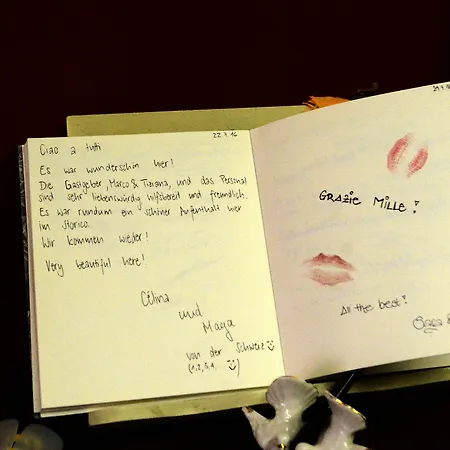 22.7.16
Ciao a tutti
Es war wunderschin hier!
Die Gastgeber, Marco & Tiziana, und das Personal
sind sehr liebenswürdig, hilfsbereit und freundlich.
Es war rundum ein schöner Aufenthalt hier
im Storico.
Wir kommen wieder!
Very beautiful here!
Célina
und
Maya
von der Schweiz
GRAZIE MILLE!
All the best!
Sara